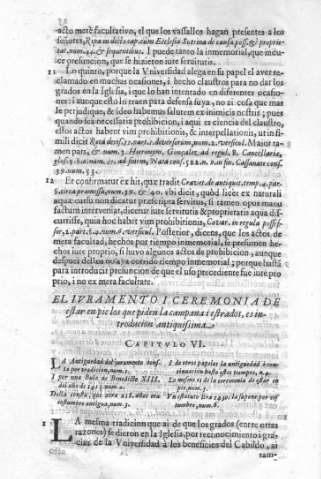 acto merè facultativo, el que los vassallos hagan presentes a los
señores, Rota in dicto cap. cum Ecclesia Sutrina de causa poss. & proprie-
tat. num. 24. & sequentibus. I puede tanto la inmemorial, que indu-
ce presuncion, que se hizieron iure servitutis.
11 Lo quinto, porque la Vniversidad alega en su papel el aver re-
clamado en muchas ocasiones, i hecho claustros para no dar los
grados en la Iglesia, i que lo han intentado en diferentes ocasio-
nes: i aunque esto lo traen para defensa suya, no ai cosa que mas
les perjudique, & ideo habemus salutem ex inimicis nostris; pues
quando sea necessaria prohibicion, i aqui ex ciencia del claustro,
estos actos habent vim prohibitionis, & interpellationis, ut in si-
mili dicit Rota
12 Et confirmatur ex his, quæ tradit Cravet. de antiquit. temp. 4. par-
vbi dicit, quòd licet ex naturali
aquæ cursu non dicatur præscripta servitus, si tamen opus manu
factum interveniat, dicetur iure servitutis & proprietatis aqua dis-
currisse, quia hoc habet vim prohibitionis, Covar. in regula posses-
sor, 2. part. §. 4. num. 6. versicul. Posterior, dicens, que los actos de
mera facultad, hechos por tiempo inmemorial, se presumen he-
chos iure proprio, si huvo algunos actos de prohibicion, aunque
despues dellos no aya corrido tiempo inmemorial; porque basta
para introducir presuncion de que el uso precedente fue iure pro
prio, i no ex mera facultate.
EL IVRAMENTO I CEREMONIA DE
estar en pie los que piden la campana i estrados, es in-
troducion antiquissima.
CAPITVLO VI.
LA Antiguedad del juramento cons-
ta por tradicion, num. 1.
I por una Bula de Benedicto XIII.
del año de 1413. num. 2.
Dicha constit. que aira 238. años era
costumbre antigua, num. 3.
I de otros papeles la antiguedad i con-
tinuacion hasta estos tiempos, n. 4.
Lo mesmo es de la ceremonia de estar en
pie, num. 5.
Vn estatuto año 1430. la supone por cos
tumbre, num. 6.
1 LA mesma tradicion que ai de que los grados (entre otras
razones) se dieron en la Iglesia, por reconocimiento i gra-
cias de la Vniversidad à los beneficios del Cabildo, ai
tam-